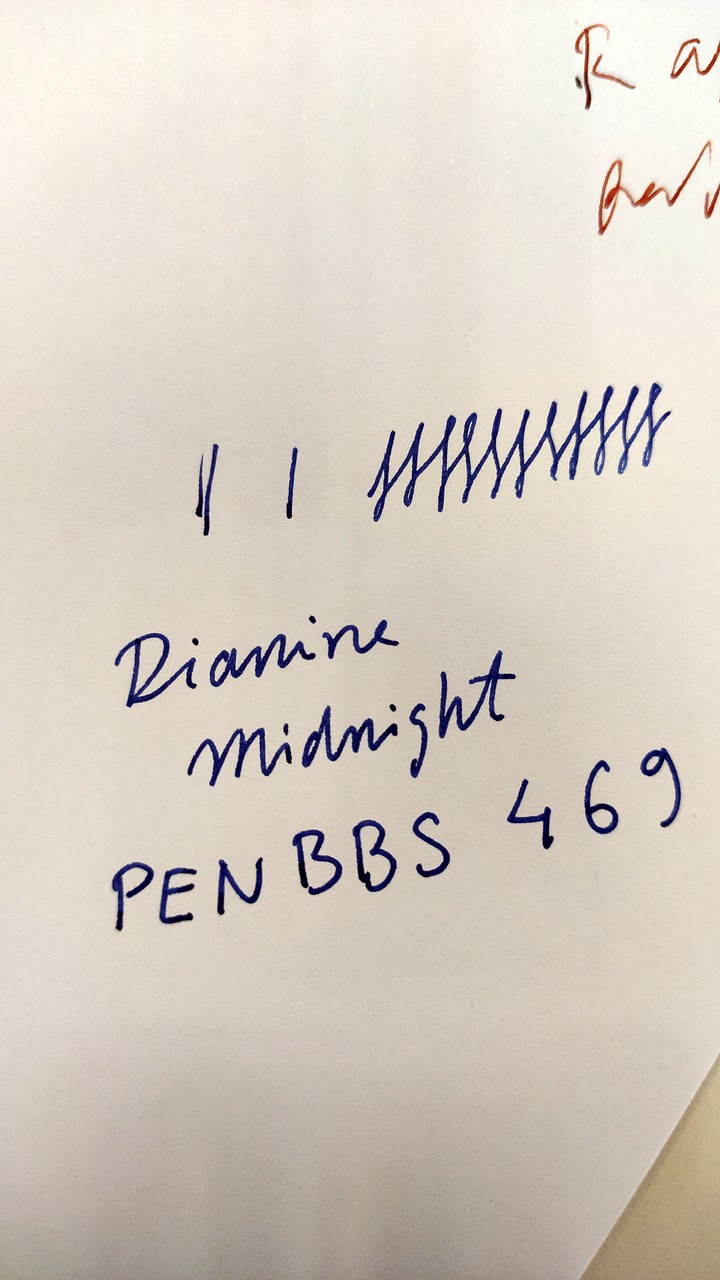 Dianine
Midnight
PENBBS 469